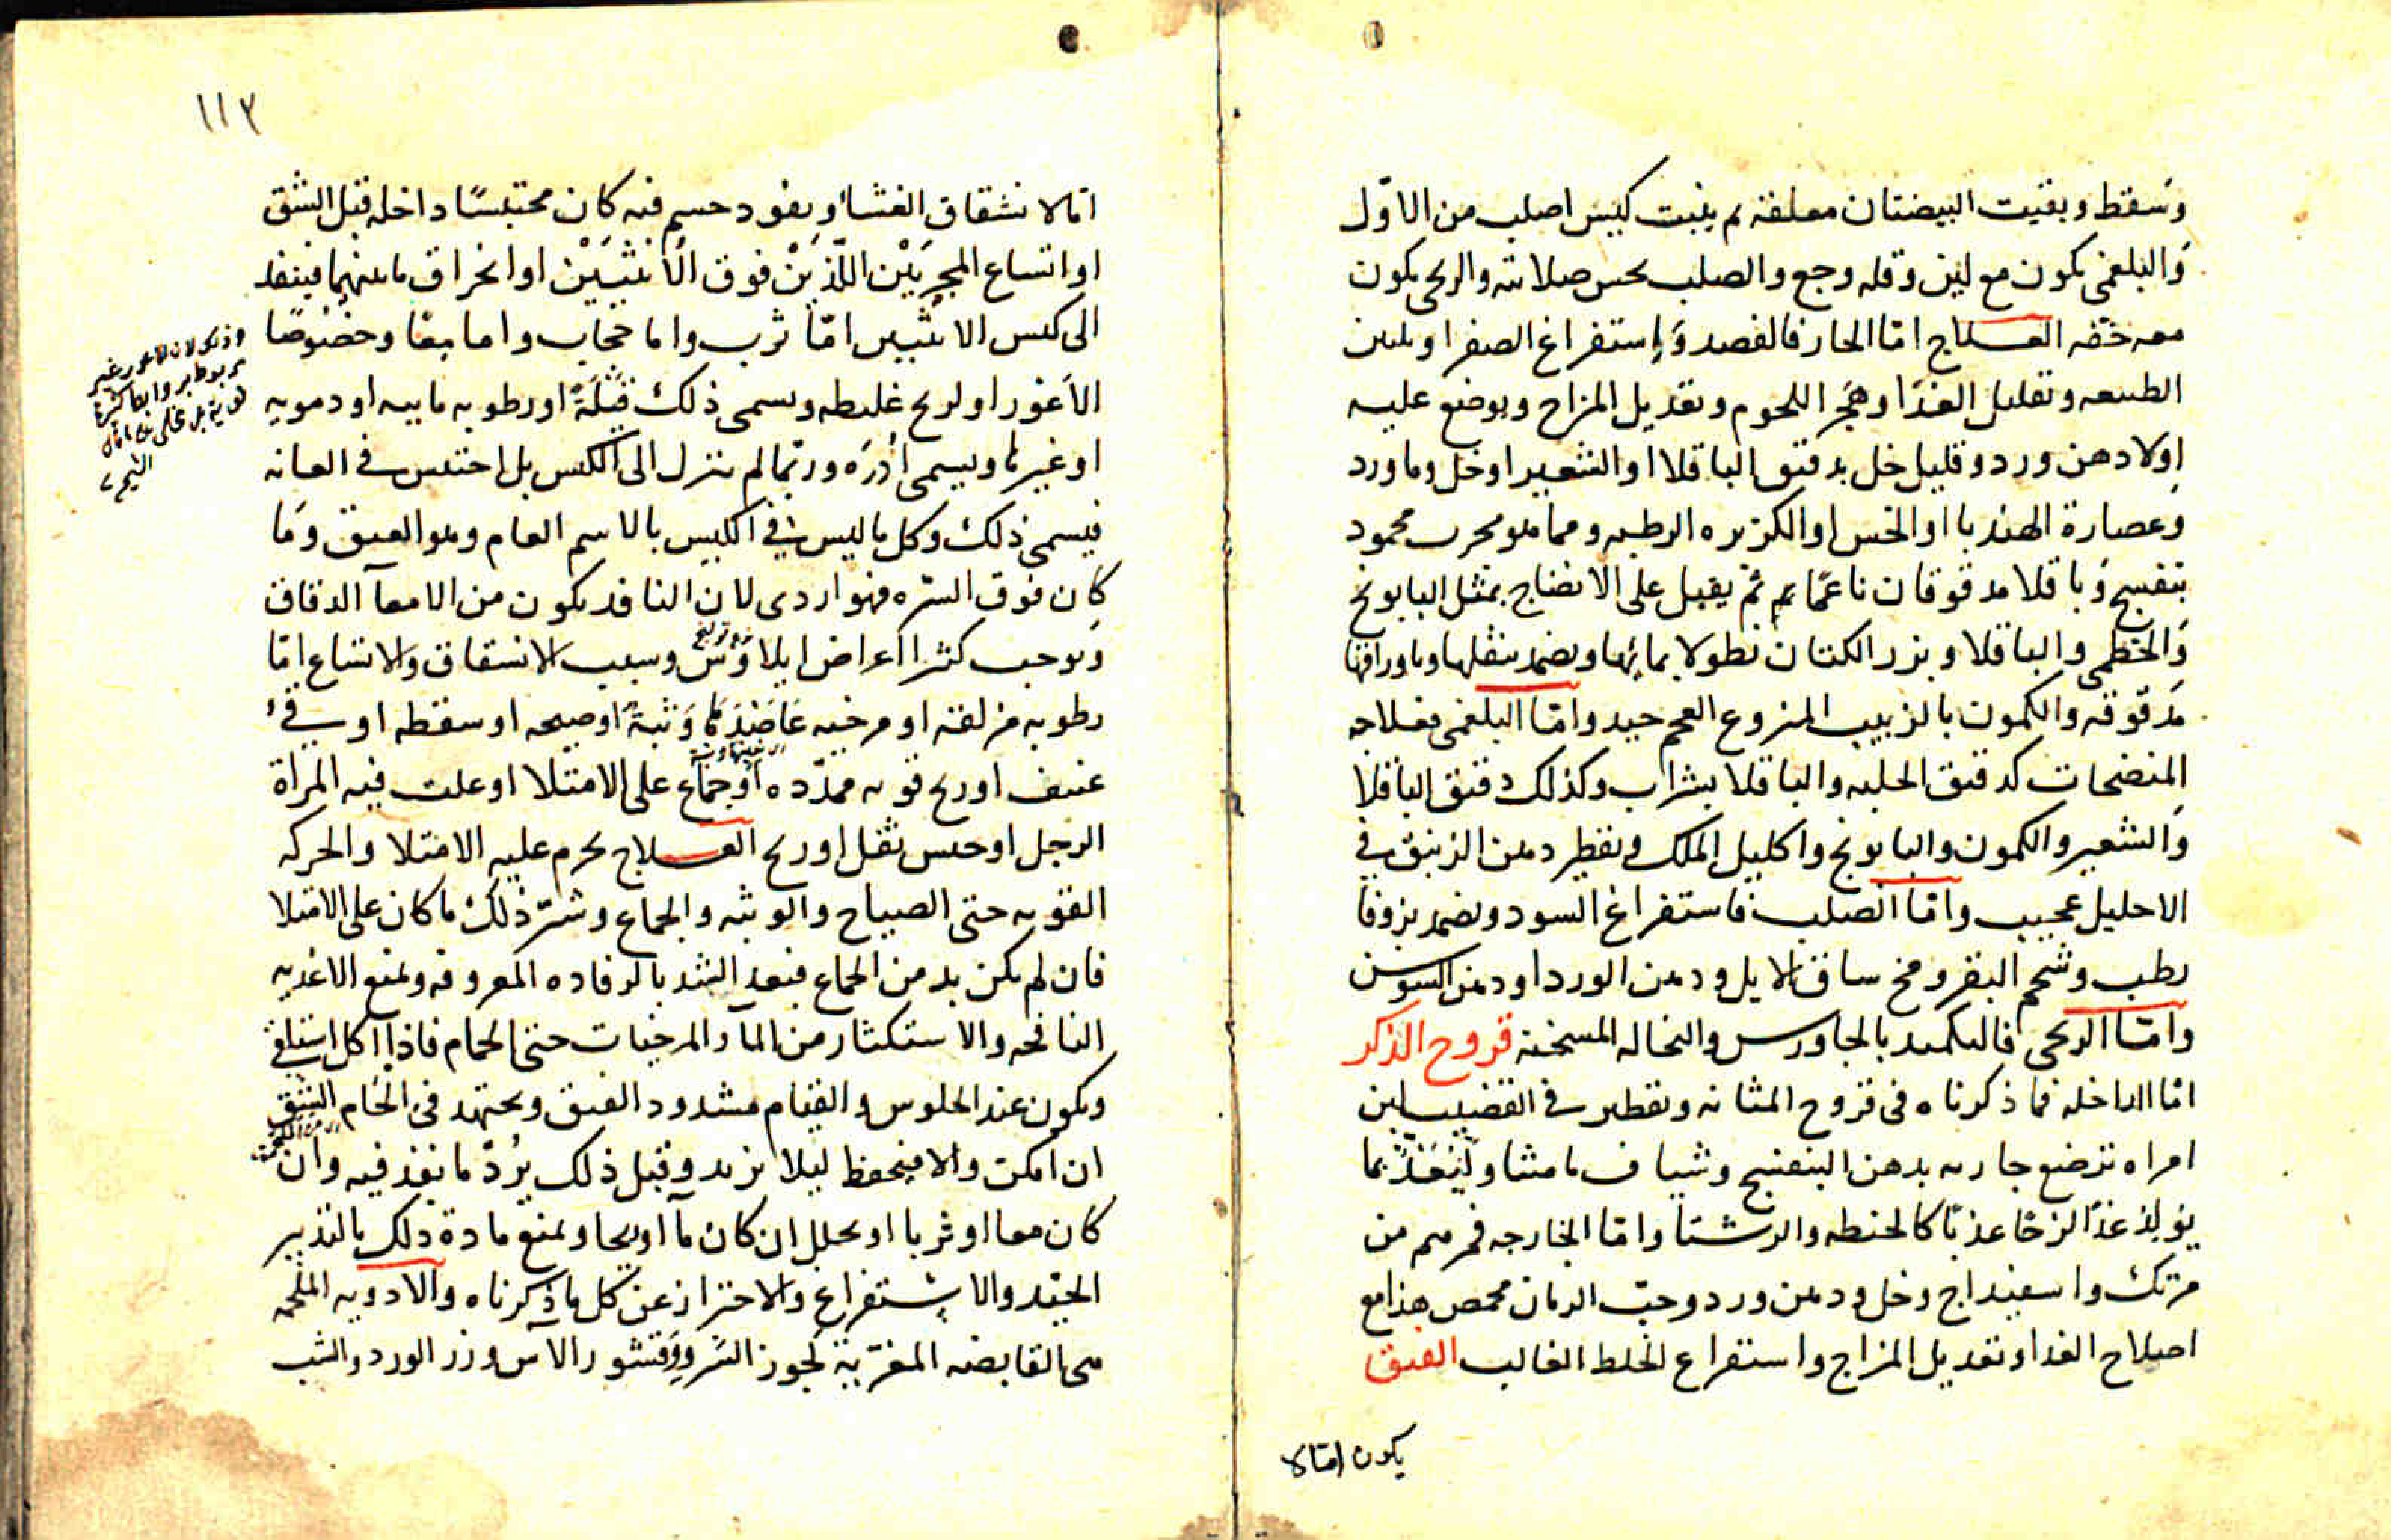 وسقط وبقيت البيضتان معلقة ثم ينبت كيس اصلب من الاول
والبلغمى يكون مع لين وقله وجع والصلب يحس صلابته والريحى يكون
معه خفه العلاج اما الحار فالفصد وإستفراغ الصفرا وتليين
الطبيعه وتقليل الغذا وهجر اللحوم وتعديل المزاج ويوضع عليه
اولا دهن ورد وقليل خل بدقيق الباقلا او الشعير او خل وماورد
وعصارة الهندبا او الخس او الكزبره الرطبه ومما هو مجرب محمود
بنفسج وباقلا مدقوقان ناعما ثم يقبل على الانضاج بمثل البابونج
والخطمى والباقلا وبزر الكتان نطولا بمائها ويضمد بثفلها وباوراقها
مدقوقه والكمون بالزبيب المنزوع العجم جيد واما البلغمى فعلاجه
المنضجات كدقيق الحلبه والباقلا بشراب وكذلك دقيق الباقلا
والشعير والكمون والبابونج واكليل الملك وتقطير دهن الزنبق في
الاحليل عجيب واما الصلب فاستفراغ السودا ويضمد بزوفا
رطب وشحم البقر ومخ ساق الايل ودهن الورد او دهن السوسن
واما الريحى فالتكميد بالجاورس والنخاله المسخنه قروح الذكر
اما الداخله فما ذكرناه فى قروح المثانه ويقطر في القضيب لبن
امراه ترضع جاريه بدهن البنفسج وشياف مامثيا وليغذ بما
يولد غذا لزجا عذبا كالحنطه والرشتا واما الخارجه فمرهم من
مرتك واسفيداج وخل ودهن ورد وحب الرمان محمص هذا مع
اصلاح الغدا وتعديل المزاج واستفراغ الخلط الغالب الفتق
يكون اما لا
١١٣
اما لانشقاق الغشا ونفود جسم فيه كان محتبسا داخله قبل الشق
او اتساع المجريين اللذين فوق الانثيين او انخراق ما بينهما فينفد
الى كيس الانثيين اما ثرب واما حجاب واما معا وخصوصا
الاعور او لريح غليظه ويسمى ذلك قيلة او رطوبه مائيه او دمويه
او غيرها ويسمى أدره وربما لم ينزل الى الكيس بل احتبس في العانه
فيسمى ذلك وكل ما ليس في الكيس بالاسم العام وهو الفتق وما
كان فوق السره فهو اردى لان النافد يكون من الامعا الدقاق
ويوجب كثرا اعراض ايلاوس وسبب الانشقاق والاتساع اما
رطوبه مزلقه او مرخيه عاضدها وثبة او صيحه او سقطه او قئ
عنيف او ريح قويه ممدده او جماع على الامتلا او علت فيه المراة
الرجل او حبس ثفل او ريح العلاج يحرم عليه الامتلا والحركه
القويه حتى الصياح والوثبه والجماع وشر ذلك ما كان على الامتلا
فان لم يكن بد من الجماع فبعد الشد بالرفاده المعروفه ويمنع الاغديه
النافخه والاستكثار من الما والمرخيات حتى الحمام فاذا اكل استلقى
ويكون عند الجلوس والقيام مشدود الفتق ويجتهد فى الحام الشق
ان امكن والا فيحفظ ليلا يزيد وقبل ذلك يرد ما نفذ فيه وان
كان معا او ثربا او يحلل ان كان ما او ريحا ويمنع مادة ذلك بالتدبير
الجيد والاستفراغ والاحتراز عن كل ما ذكرناه والادويه الملحمه
هى القابضه المغريه كجوز السرو وقشور الاس وزر الورد والشب